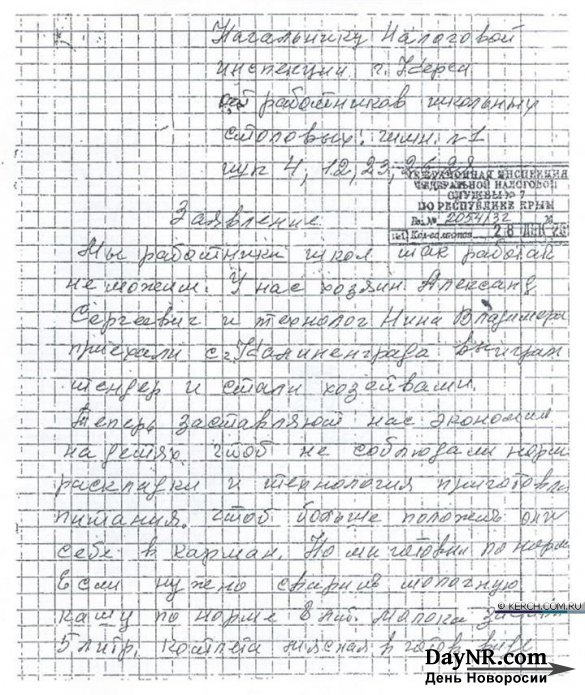 Начальнику Налоговой
инспекции г. Керчи
от работников школьных
столовых: гимн. №1
шк 4, 12, 23, 26, 28
ИНСПЕКЦИЯ
ФЕДЕРАЛЬНОЙ НАЛОГОВОЙ
СЛУЖБЫ № 7
ПО РЕСПУБЛИКЕ КРЫМ
Вх. № 2054/32
Кол-во листов 28
Заявление
Мы работники школ так работак
не можем. У нас хозяин Александ
Сергеевич и технолог Нина Владимиров
приехали с г. Калиненграда выиграли
тендер и стали хозяевами.
Теперь заставляют нас экономит
на детях чтоб не соблюдали норм
раскладки и технология приготовле
питания. Чтоб больше положить они
себе в карман. По ми готовим по норм
Если нужено сварить молочную
кашу по норме 8 лит. малока
5 литр, котлета мясная в готов виде
© KERCH.COM.RU
DayNR.com
День Новоросии